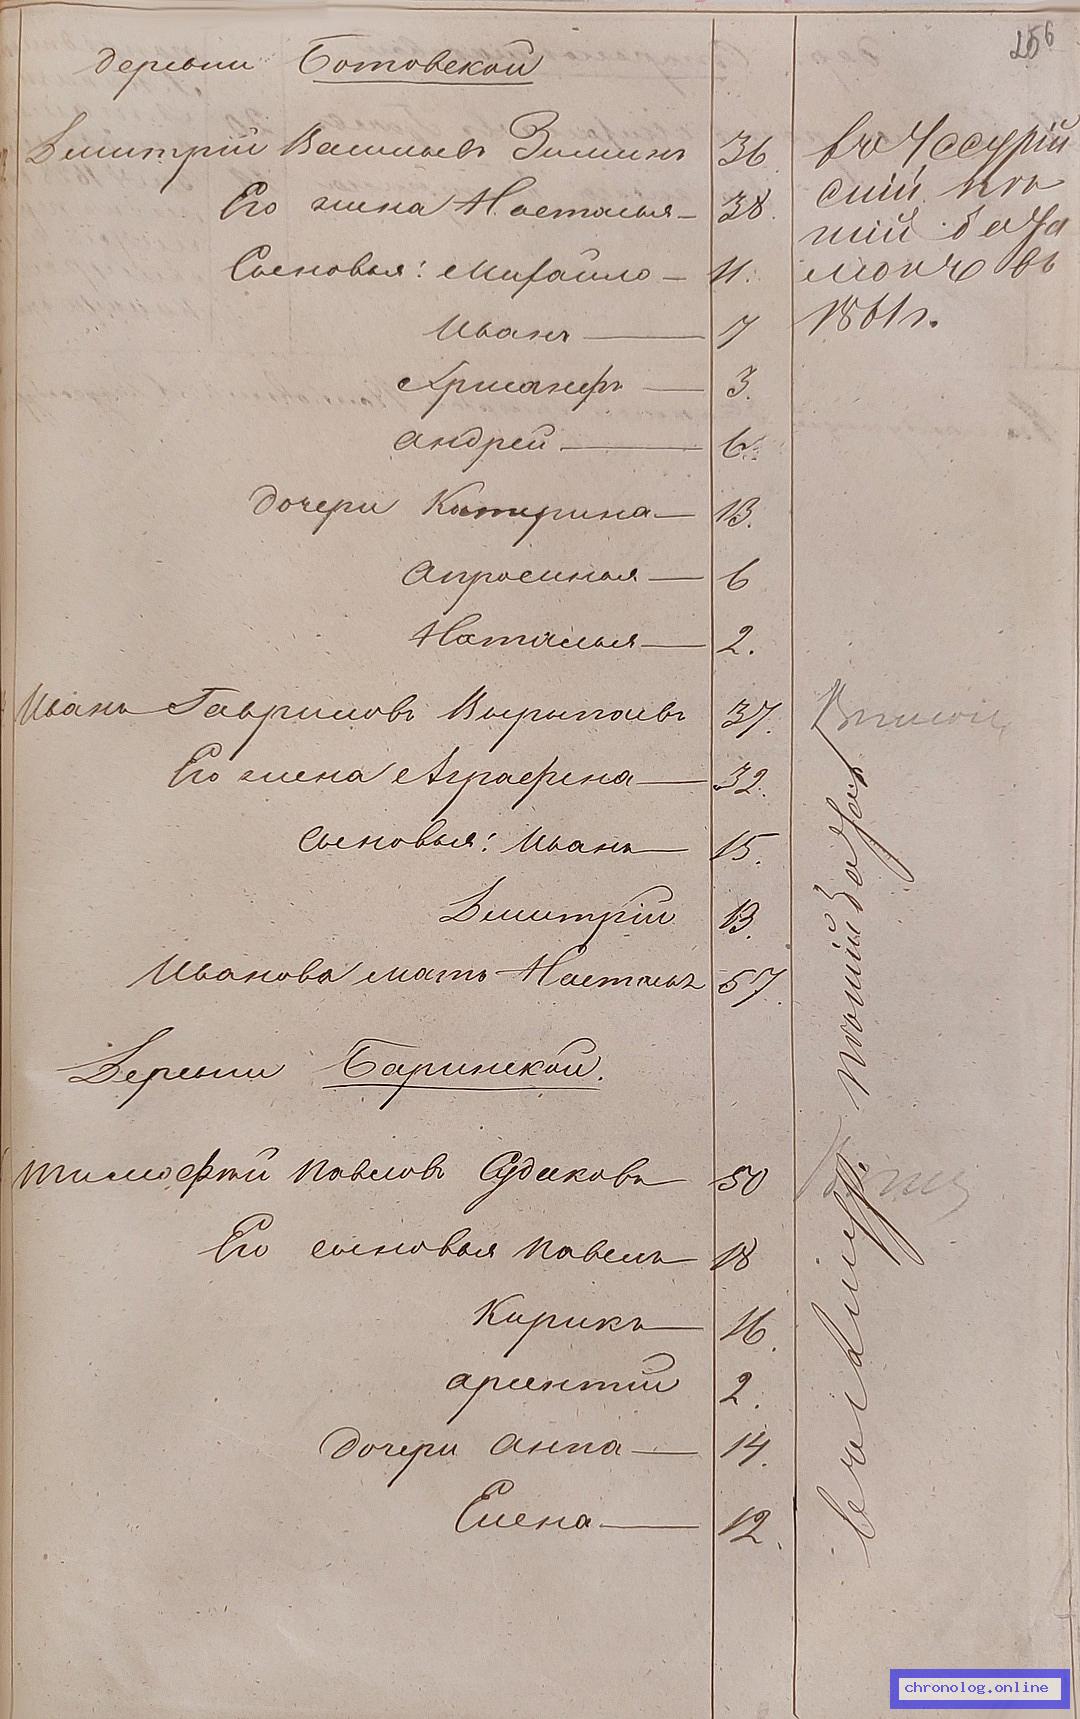 256
деревни Ботовской
Дмитрій Васильевъ Зиминъ 36.
Его жена Насталья 38.
Сыновья: Михайло 11.
Иванъ 7
Хрисанфъ 3.
андрей 6.
дочери Катерина 13.
апросинья 6
Наталья 2.
въ Уссурій
скій
казачій
въ
1861 г.
Иванъ Гавриловъ Вырыпаевъ 37.
Его жена Аграфена 32.
сыновья: Иванъ 15.
Дмитрій 13.
Иванова мать Насталья 57.
Деревни Баринской.
тимофѣй павловъ Судаковъ 50
Его сыновья павелъ 18
Кирикъ 16.
арсентій 2.
дочери анна 14.
Елена 12.
chronolog.online